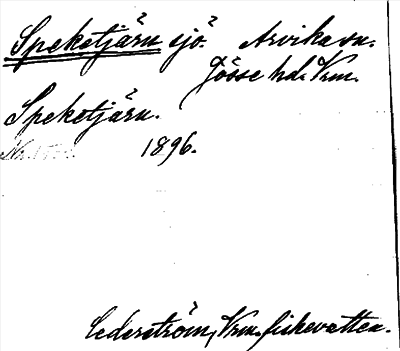 Speketjärn sjö. Arvika sn.
Jösse hd. Vrm.
Speketjärn.
1896.
Cederström, Vrm. fiskevatten.